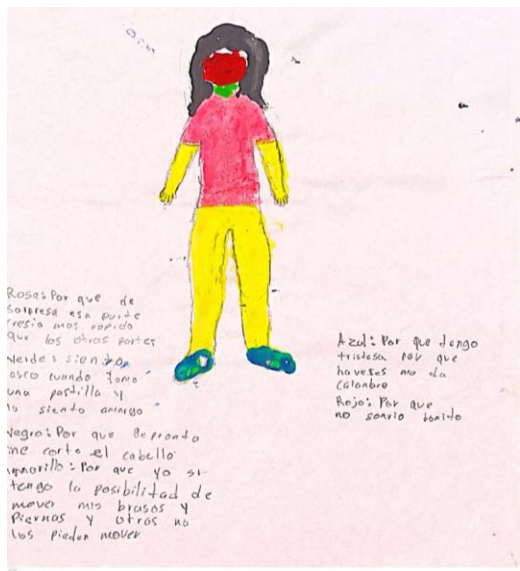 Rosa: Por que de
sorpresa esa parte
cresio mas rapido
que los otras partes
Verde: siento
asco cuando tomo
una pastilla y
lo siento amargo
Negro: Por que depronto
me corto el cabello
Amarillo: Por que yo si
tengo la posibilitad de
mover mis brasos y
Piernas y otros no
los pieden mover
Azul: Por que tengo
tristesa por que
haveses me da
calambre
Rojo: Por que
no sonrio bonito